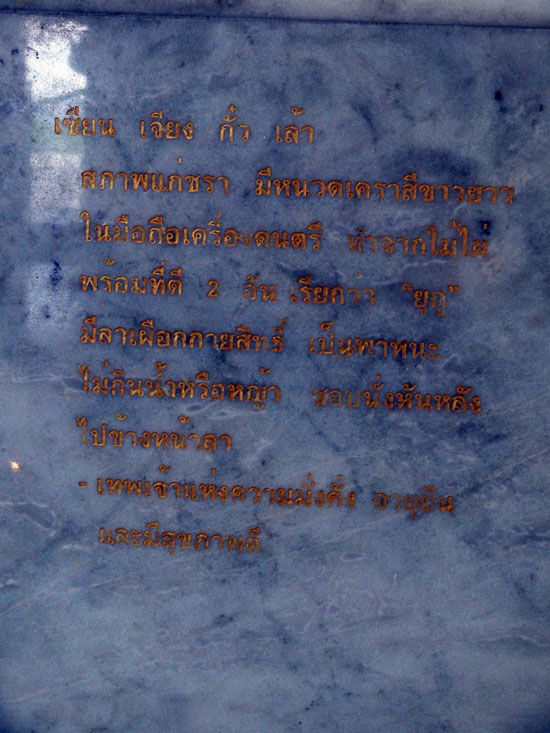 เซียน เจียง กั๋ว เล้า
สภาพแก่ชรา มีหนวดเคราสีขาวยาว
ในมือถือเครื่องดนตรี ทำจากไม้ไผ่
พร้อมที่ตี 2 อัน เรียกว่า "ยูกู"
มีลาเผือกกายสิทธิ์ เป็นพาหนะ
ไม่กินน้ำหรือหญ้า ชอบนั่งหันหลัง
ไปข้างหน้าลา
- เทพเจ้าแห่งความมั่งคั่ง อายุยืน
และมีสุขภาพดี